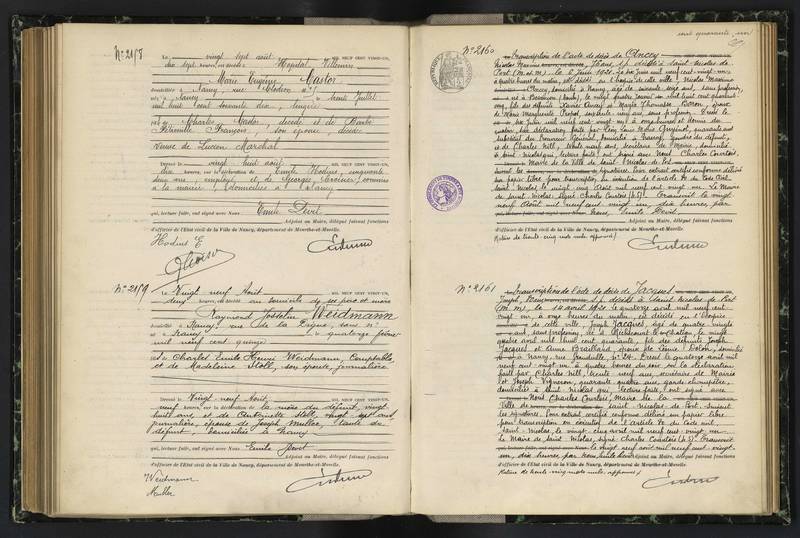 N° 2158
Le vingt sept août MIL NEUF CENT VINGT-UN,
dix sept heures, est décédé à Hôpital Villemin
Marie Eugénie Nador
domiciliée à Nancy, rue Clodion n°
née à Nancy le trente Juillet
mil huit cent soixante dix, lingère
fille de Charles Nador, décédé et de Barbe
Pétronille François, son épouse, décédée
Veuve de Lucien Marchal
Dressé le vingt huit août MIL NEUF CENT VINGT-UN,
dix heures, sur la déclaration de Emile Hodins, cinquante
deux ans, employé, et de Georges Croisier, commis
à la mairie, domiciliés à Nancy
qui, lecture faite, ont signé avec Nous Emile Devit
Adjoint au Maire, délégué faisant fonctions
d'officier de l'État civil de la Ville de Nancy, département de Meurthe-et-Moselle.
Hodins E
N° 2159
Le Vingt neuf Août MIL NEUF CENT VINGT-UN,
deux heures, est décédé au domicile de ses père et mère
Raymond Joseph Weidmann
domicilié à Nancy, rue de la Digue, sans n°
né à Nancy le quatorze février
mil neuf cent quinze
fils de Charles Emile Henri Weidmann, Comptable
et de Madeleine Stoll, son épouse, journalière
Dressé le Vingt neuf Août MIL NEUF CENT VINGT-UN,
neuf heures, sur la déclaration de la mère du défunt, vingt
huit ans, et de Antoinette Stoll, vingt sept ans
journalière, épouse de Joseph Muller, tante du
défunt, domiciliée à Nancy
qui, lecture faite, ont signé avec Nous Emile Devit
Adjoint au Maire, délégué faisant fonctions
d'officier de l'État civil de la Ville de Nancy, département de Meurthe-et-Moselle.
Weidmann
Muller
cent quarante un
N° 2160
Transcription de l'acte de décès de Clncey
Nicolas Maxime, 76 ans, s.p. décédé à Saint-Nicolas de
Port (M. et M.) le 6 Juin 1921. Le six juin mil neuf cent vingt-un
à quatre heures du matin, est décédé en l'hospice de cette ville, Nicolas Maxime
domicilié à Nancy, âgé de soixante seize ans, sans profession,
né à Besançon (Doubs), le vingt quatre
fils des défunts Xavier et Marie Thérèse Boron, époux
de Marie Marguerite
substitut du Procureur Général, domicilié à Nancy, gendre du défunt,
et de Charles Nill, trente neuf ans, secrétaire de Mairie, domicilié
à Saint Nicolas, qui, lecture faite, ont signé avec Nous Charles Courtois,
Maire de la Ville de Saint Nicolas de Port
sur papier libre pour transcription en exécution de l'article 80 du Code civil.
Saint Nicolas, le vingt cinq Août mil neuf cent vingt un. Le Maire
de Saint Nicolas, signé Charles Courtois (L.S). Transcrit le vingt
neuf Août mil neuf cent vingt un, dix heures, par
qui, lecture faite, ont signé avec Nous, Emile Devit
Adjoint au Maire, délégué faisant fonctions
d'officier de l'État civil de la Ville de Nancy, département de Meurthe-et-Moselle.
Rature de trente cinq mots nuls, approuvé
N° 2161
Transcription de l'acte de décès de Jacques
Joseph, s.p. décédé à Saint Nicolas de Port
(M. m.), le 14 avril 1921. Le quatorze avril mil neuf cent
vingt un, à onze heures du matin, est décédé en l'hospice
de cette ville, Joseph Jacques, âgé de quatre vingt
ans, sans profession, né à
quatre avril mil huit cent quarante, fils des défunts Joseph
Jacques et Anne Bailliard, époux de Louise Dolon, domicilié
à Nancy, rue Grandville, n° 24. Dressé le quatorze avril mil
neuf cent vingt un, à quatre heures du soir sur la déclaration
faite par Charles Nill, trente neuf ans, secrétaire de Mairie
et Joseph Vigneron, quarante quatre ans, garde champêtre,
domiciliés à Saint Nicolas qui, lecture faite, ont signé avec
Nous Charles Courtois, Maire de la
Ville de Saint Nicolas de Port. Suivent
les signatures. Pour extrait certifié conforme délivré sur papier libre
pour transcription en exécution de l'article 80 du Code civil.
Saint Nicolas, le vingt cinq avril mil neuf cent vingt un.
Le Maire de Saint Nicolas, signé Charles Courtois (L.S). Transcrit
le vingt neuf août mil neuf cent vingt
un, dix heures, par
Adjoint au Maire, délégué faisant fonctions
d'officier de l'État civil de la Ville de Nancy, département de Meurthe-et-Moselle.
Rature de trente cinq mots nuls, approuvé